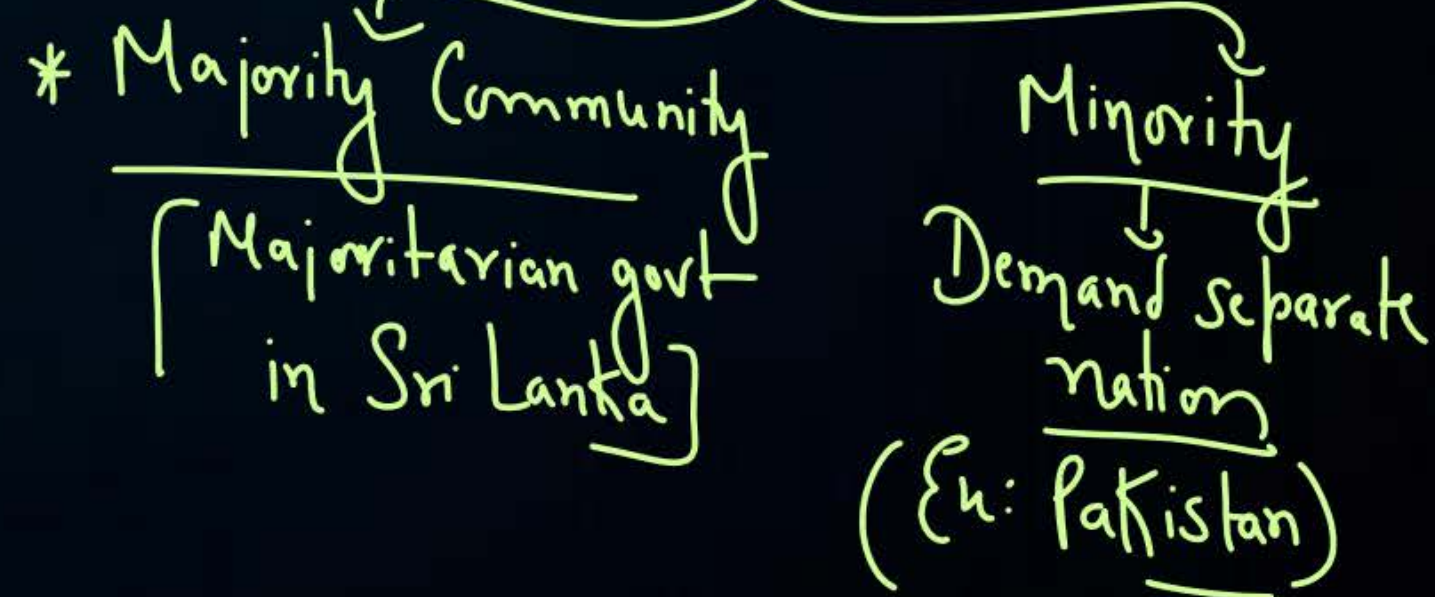 * Majority Community
[Majoritarian govt
in Sri Lanka]
Minority
Demand separate
nation
(Ex: Pakistan)